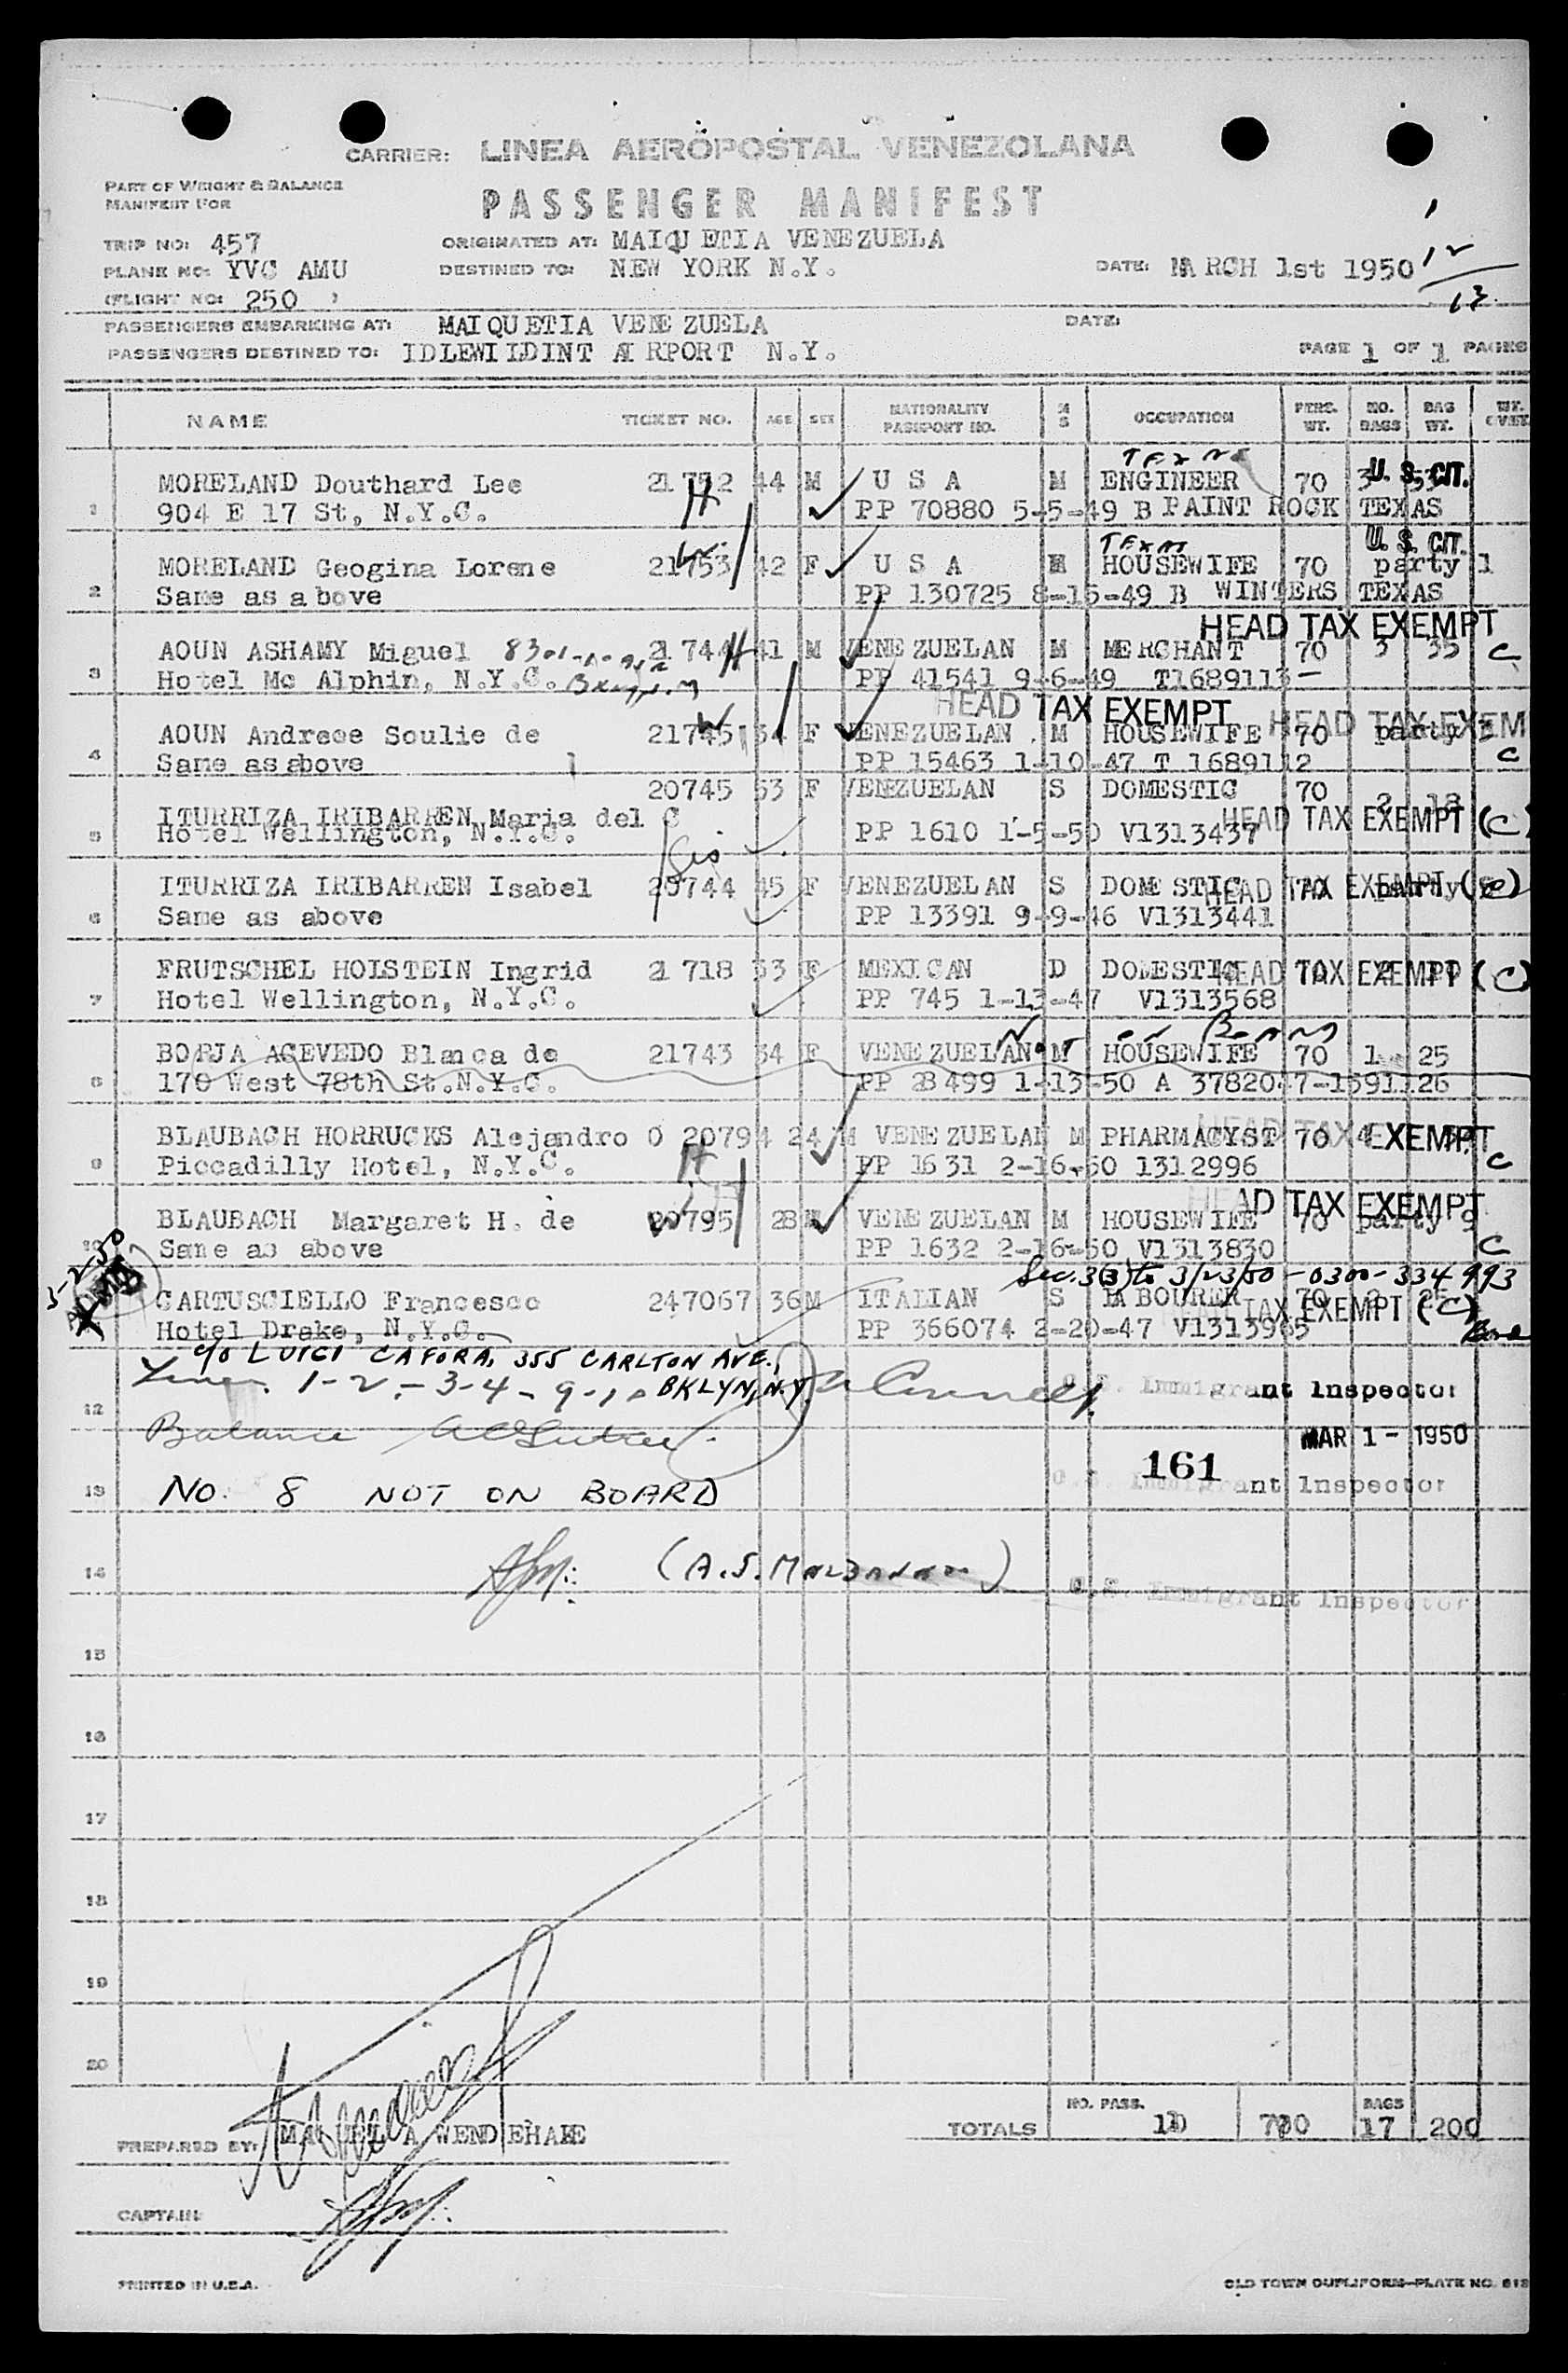 CARRIER: LINEA AEROPOSTAL VENEZOLANA
PART OF WEIGHT & BALANCE
MANIFEST FOR
PASSENGER MANIFEST
TRIP NO: 457
ORIGINATED AT: MAIQUETIA VENEZUELA
PLANE NO: YVC AMU
DESTINED TO: NEW YORK N.Y.
DATE: MARCH 1st 1950
12
13
(FLIGHT NO: 250 )
PASSENGERS EMBARKING AT: MAIQUETIA VENEZUELA
DATE:
PASSENGERS DESTINED TO: IDLEWILDINT AIRPORT N.Y.
PAGE 1 OF 1 PAGES
NAME TICKET NO. AGE SEX NATIONALITY PASSPORT NO. M S OCCUPATION PERS. WT. NO. BAGS BAG WT. WT. OVER
TEXAS
1 MORELAND Douthard Lee 21752 44 M U S A M ENGINEER 70 3 U. S. CIT.
904 E 17 St, N.Y.C. H PP 70880 5-5-49 B PAINT ROCK TEXAS
TEXAS U. S. CIT.
2 MORELAND Geogina Lorene 21753 42 F U S A M HOUSEWIFE 70 party 1
Same as above PP 130725 8-15-49 B WINTERS TEXAS
HEAD TAX EXEMPT
3 AOUN ASHAMY Miguel 8301 21744 H 41 M VENEZUELAN M MERCHANT 70 3 35 C
Hotel Mc Alphin, N.Y.C. PP 41541 9-6-49 T1689113-
HEAD TAX EXEMPT HEAD TAX EXEM
4 AOUN Andreee Soulie de 21745 W 34 F VENEZUELAN M HOUSEWIFE 70 party 3
Same as above PP 15463 1-10-47 T 1689112 C
20745 53 F VENEZUELAN S DOMESTIC 70 2 18
5 ITURRIZA IRIBARREN Maria del C
Hotel Wellington, N.Y.C. PP 1610 1-5-50 V1313437 HEAD TAX EXEMPT (C)
Sis
6 ITURRIZA IRIBARREN Isabel 20744 45 F VENEZUELAN S DOMESTIC HEAD 70 TAX EXEMPT party (C)
Same as above PP 13391 9-9-46 V1313441
7 FRUTSCHEL HOLSTEIN Ingrid 21718 33 F MEXICAN D DOMESTIC HEAD 70 TAX 2 EXEMPT (C)
Hotel Wellington, N.Y.C. PP 745 1-13-47 V1313568
Not on Board
8 BORJA ACEVEDO Blanca de 21743 34 F VENEZUELAN M HOUSEWIFE 70 1 25
170 West 78th St.N.Y.C. PP 28499 1-13-50 A 3782047-1591126
9 BLAUBACH HORRUCKS Alejandro O 20794 24 M VENEZUELAN M PHARMACYST 70 HEAD TAX EXEMPT
Piccadilly Hotel, N.Y.C. H PP 1631 2-16-50 1312996 C
HEAD TAX EXEMPT
10 BLAUBACH Margaret H. de 20795 28 VENEZUELAN M HOUSEWIFE 70 party 9
Same as above PP 1632 2-16-50 V1313830 C
3-2-50
Sec. 3(3) to 3/23/50 - 0300-334993
CARTUSCIELLO Francesco 247067 36 M ITALIAN S LABOURER 70 2 25
Hotel Drake, N.Y.C. PP 366074 2-20-47 V1313965 HEAD TAX EXEMPT (C)
c/o LUIGI CAFORA, 355 CARLTON AVE.,
1-2-3-4-9-10 BKLYN, N.Y.
U.S. Immigrant Inspector
12 Balance
MAR 1 - 1950
161
13 NO. 8 NOT ON BOARD
U.S. Immigrant Inspector
14
U.S. Immigrant Inspector
15
16
17
18
19
20
TOTALS NO. PASS. 10 700 BAGS 17 200
PREPARED BY:
CAPTAIN:
PRINTED IN U.S.A.
OLD TOWN DUPLIFORM—PLATE NO.